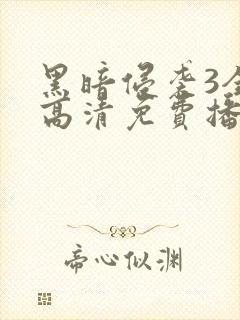 黑暗侵袭3全
高清免費播
帝心似渊